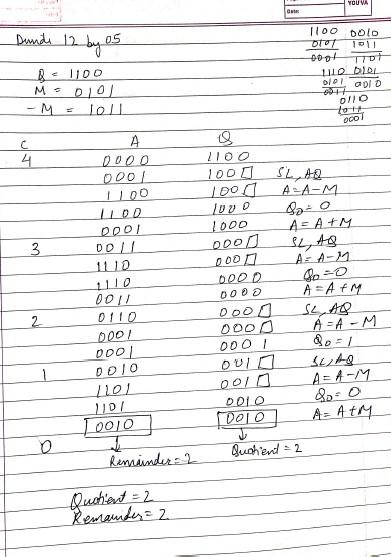 Date:
YOUVA
Divide 12 by 05
1100 0010
0101 1011
0001 1101
1110 0101
0101 0010
0011
0110
1011
0001
Q = 1100
M = 0101
-M = 1011
C A Q
4 0000 1100
0001 100□ SL, AQ
1100 100□ A=A-M
1100 1000 Q0=0
0001 1000 A=A+M
3 0011 000□ SL, AQ
1110 000□ A=A-M
1110 0000 Q0=0
0011 0000 A=A+M
2 0110 000□ SL, AQ
0001 000□ A=A-M
0001 0001 Q0=1
1 0010 001□ SL, AQ
1101 001□ A=A-M
1101 0010 Q0=0
0010 0010 A=A+M
0 ↓ ↓
Remainder=2 Quotient=2
Quotient=2
Remainder=2